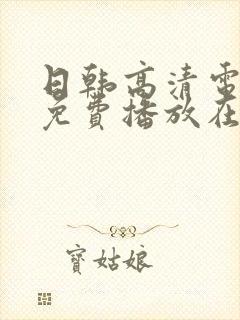 日韩高清電
免費播放在
寶姑娘